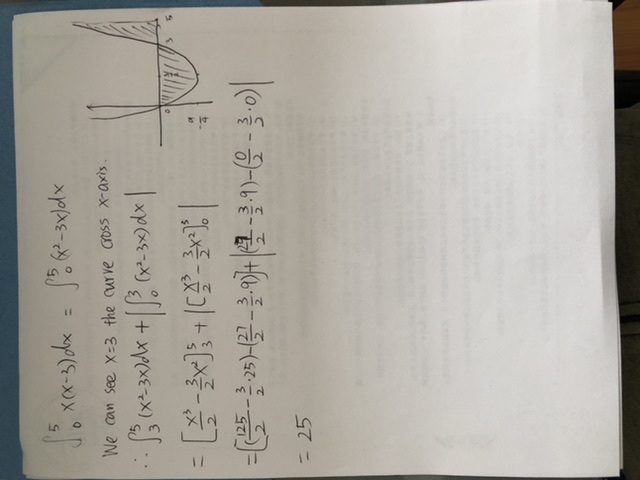 ∫₀⁵ x(x-3)dx = ∫₀⁵ (x²-3x)dx
We can see x=3 the curve cross x-axis.
∴ ∫₃⁵ (x²-3x)dx + |∫₀³ (x²-3x)dx|
= [x³/2 - 3/2 x²]₃⁵ + |[x³/2 - 3/2 x²]₀³|
= [(125/2 - 3/2·25)-(27/2 - 3/2·9)] + |(27/2 - 3/2·9)-(0/2 - 3/2·0)|
= 25
0
3
5